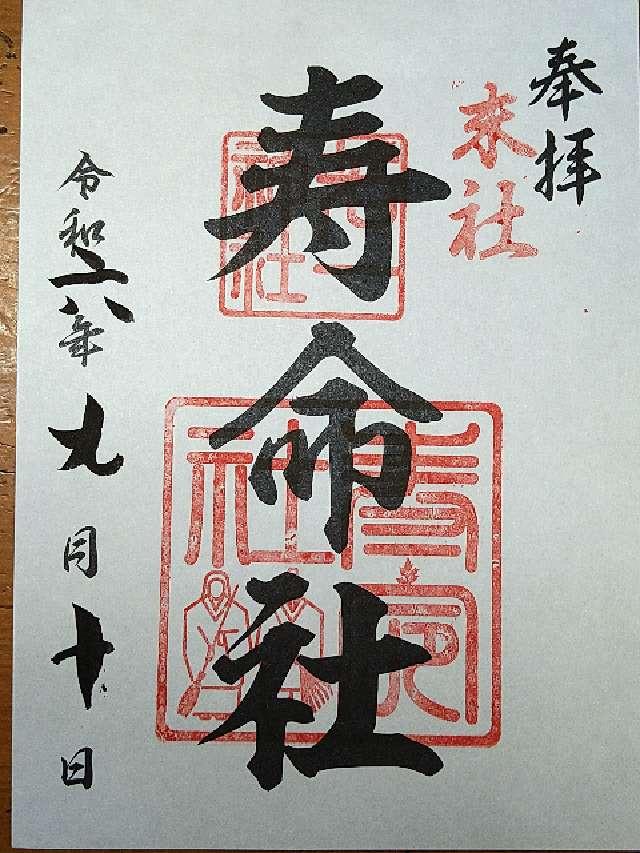 奉拝
末社
寿命社
令和六年九月十日